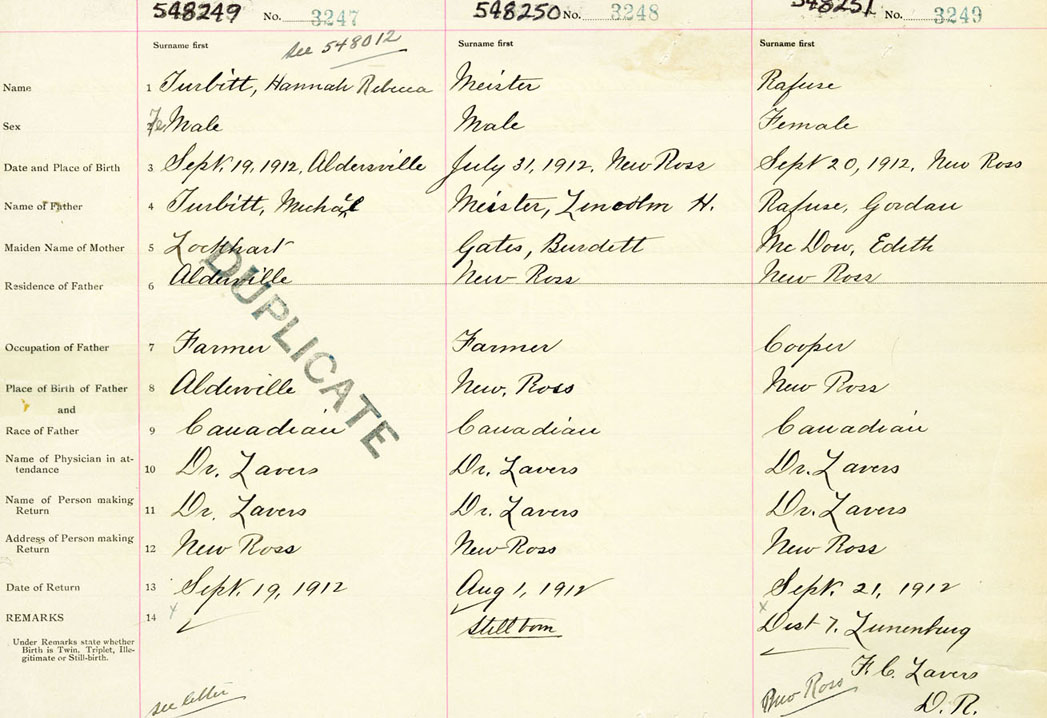 548249 No. 3247 548250 No. 3248 548251 No. 3249
Surname first see 548012 Surname first Surname first
Name 1 Turbitt, Hannah Rebecca Meister Rafuse
Sex 2 Fe Male Male Female
Date and Place of Birth 3 Sept. 19, 1912, Aldersville July 31, 1912, New Ross Sept 20, 1912, New Ross
Name of Father 4 Turbitt, Michael Meister, Lincolm H. Rafuse, Gordan
Maiden Name of Mother 5 Lockhart Gates, Burdett Mc Dow, Edith
Residence of Father 6 Alderville New Ross New Ross
DUPLICATE
Occupation of Father 7 Farmer Farmer Cooper
Place of Birth of Father 8 Alderville New, Ross New Ross
and
Race of Father 9 Canadian Canadian Canadian
Name of Physician in at-
tendance 10 Dr. Lavers Dr. Lavers Dr. Lavers
Name of Person making
Return 11 Dr. Lavers Dr. Lavers Dr. Lavers
Address of Person making
Return 12 New Ross New Ross New Ross
Date of Return 13 Sept. 19, 1912 Aug 1, 1912 Sept. 21, 1912
REMARKS 14 x Still born x Dist 7. Lunenburg
Under Remarks state whether
Birth is Twin, Triplet, Ille-
gitimate or Still-birth.
F. C. Lavers
see letter New Ross D. R.